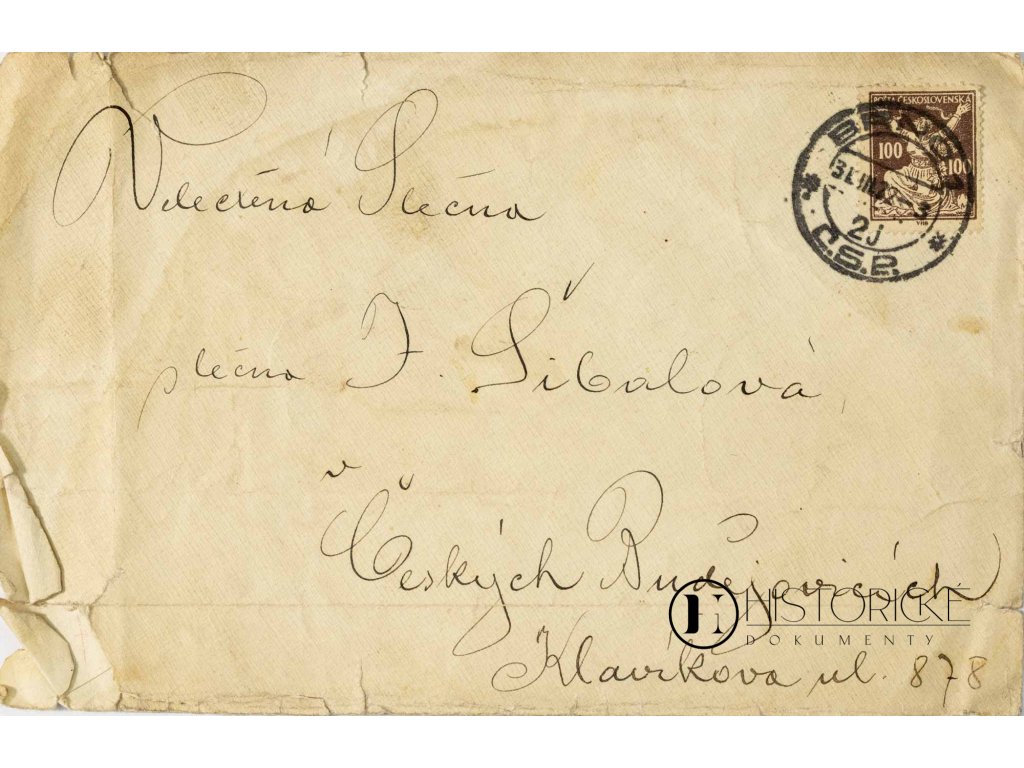 Velectěná Slečna
POŠTA ČESKOSLOVENSKÁ
100 100
31.III.22-3
2J
Č.S.P.
slečna J. Šibalová
v
Českých Budějovicích
HISTORICKÉ
DOKUMENTY
Klavíkova ul. 878